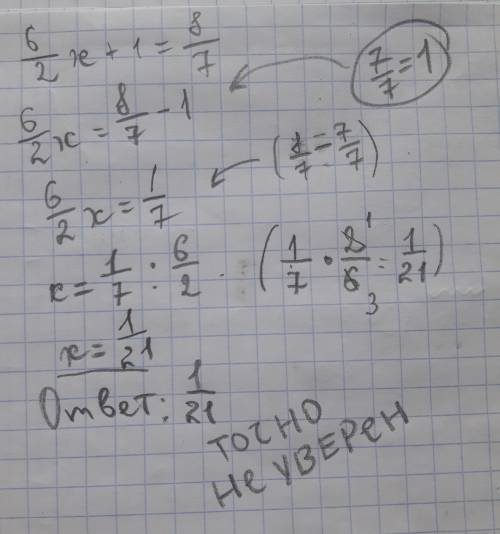 6/2 x + 1 = 8/7
7/7 = 1
6/2 x = 8/7 - 1
(1/7 = 7/7)
6/2 x = 1/7
x = 1/7 : 6/2 (1/7 · 2¹/6₃ = 1/21)
x = 1/21
Ответ: 1/21
ТОЧНО
Не УВЕРеН